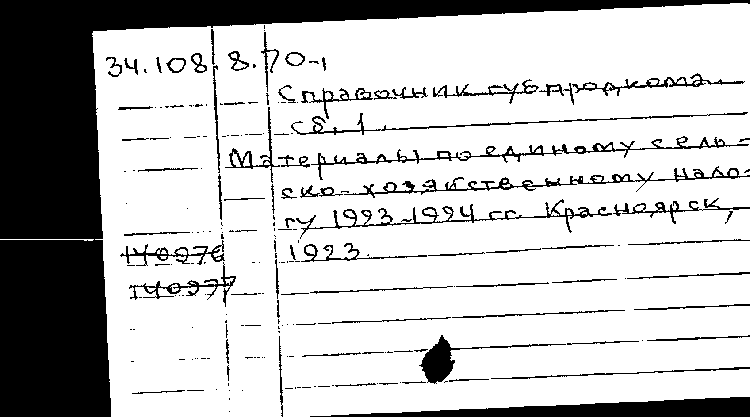 34.108.8.70-1
Справочник губпродкома.
Сб. 1.
Материалы по единому сель-
ско-хозяйственному нало-
гу 1923-1924 гг. Красноярск,
140976 1923.
140977